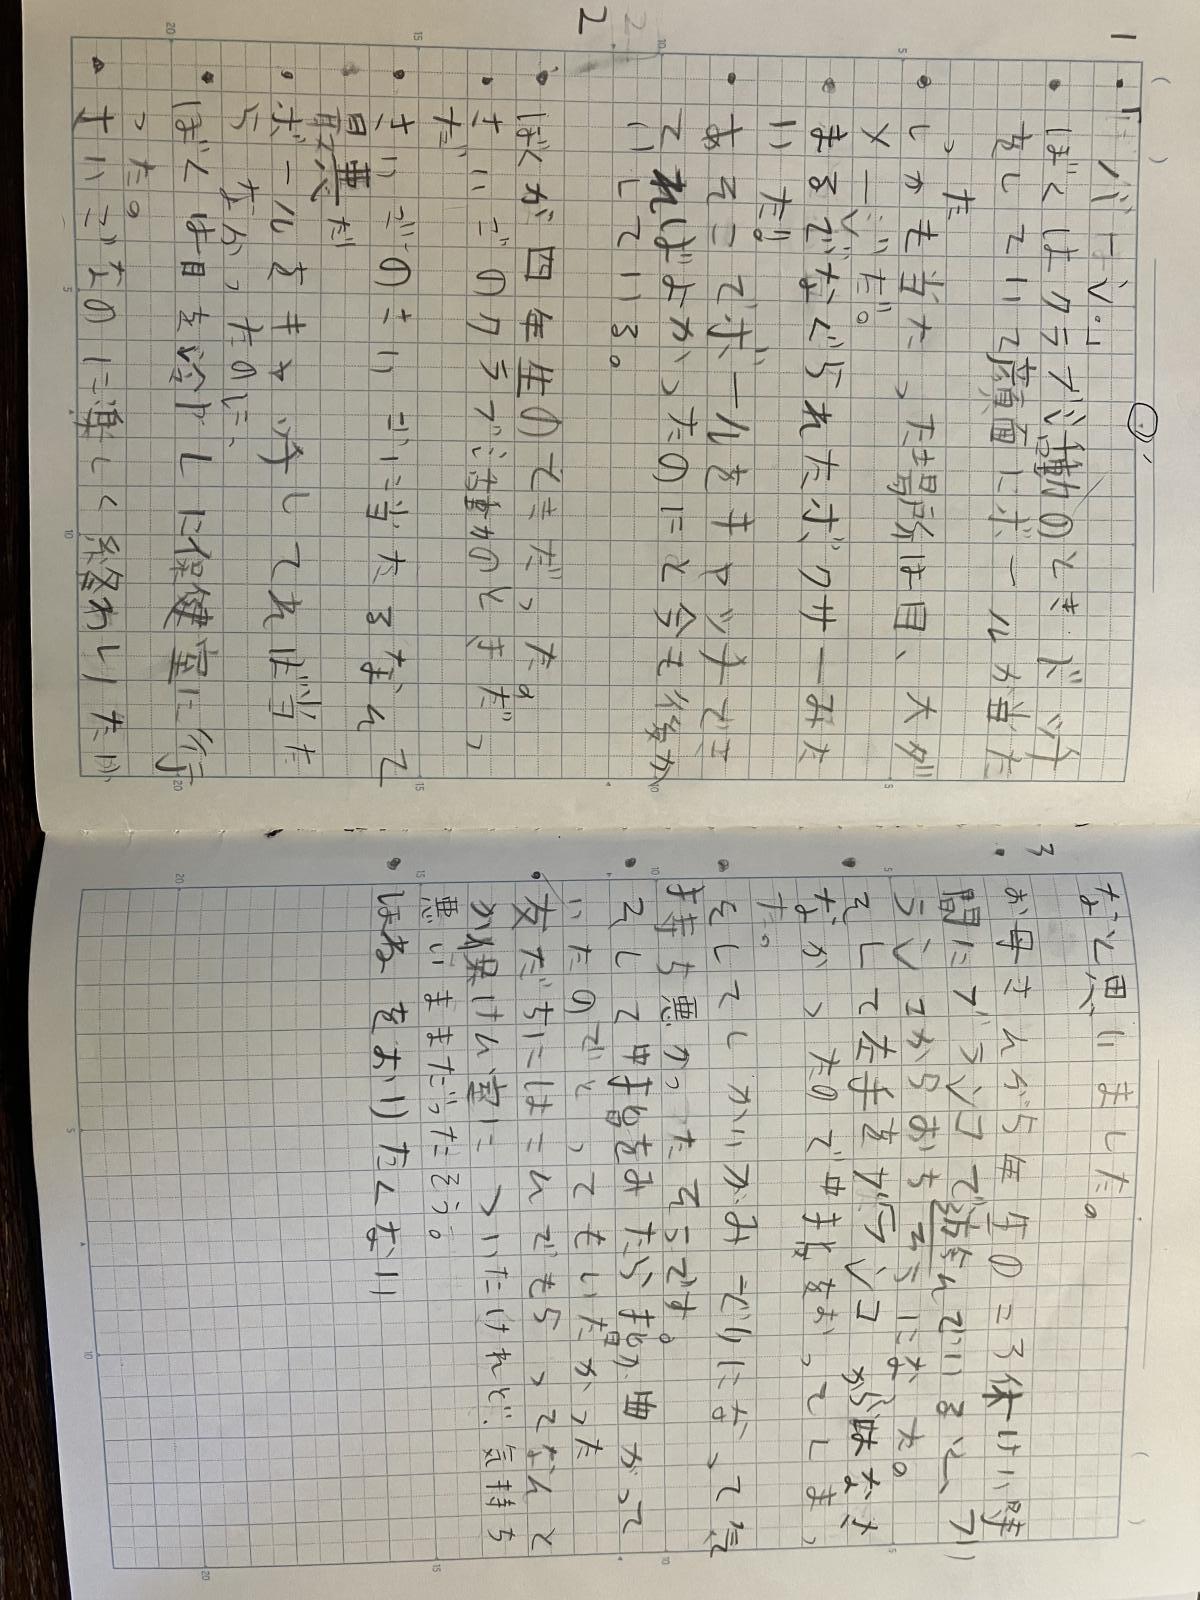 1
「バーン」
ぼくはクラブ活動のときドッヂ
をしていて顔面にボールが当た
った
しかも当たった場所は目、大ダ
メージだ。
まるでなぐられたボクサーみた
いだ。
あそこでボールをキャッチでき
ていればよかったのにと今も後か
いしている。
2
ぼくが四年生のときだった。
さいごのクラブ活動のときだっ
た
さいごのさいごに当たるなんて
最悪だ
ボールをキャッチしてれば当た
らなかったのに、
ぼくは目を冷やしに保健室に行
った。
さいごなのに楽しく終わりたい
なと思いました。
3
お母さんが5年生の休けい時
間にブランコで遊んでいると、ブ
ランコからおちそうになった。
そして左手をブランコからはなさ
なかったので中指をおってしまっ
た。
そしてしかいがみどりになって気
持ち悪かったそうです。
そして中指をみたら指が曲がって
いたのでとってもいたかった
友だちにはこんでもらってなんと
か保けん室についたけれど気持ち
悪いままだったそう。
ほねをおりたくない